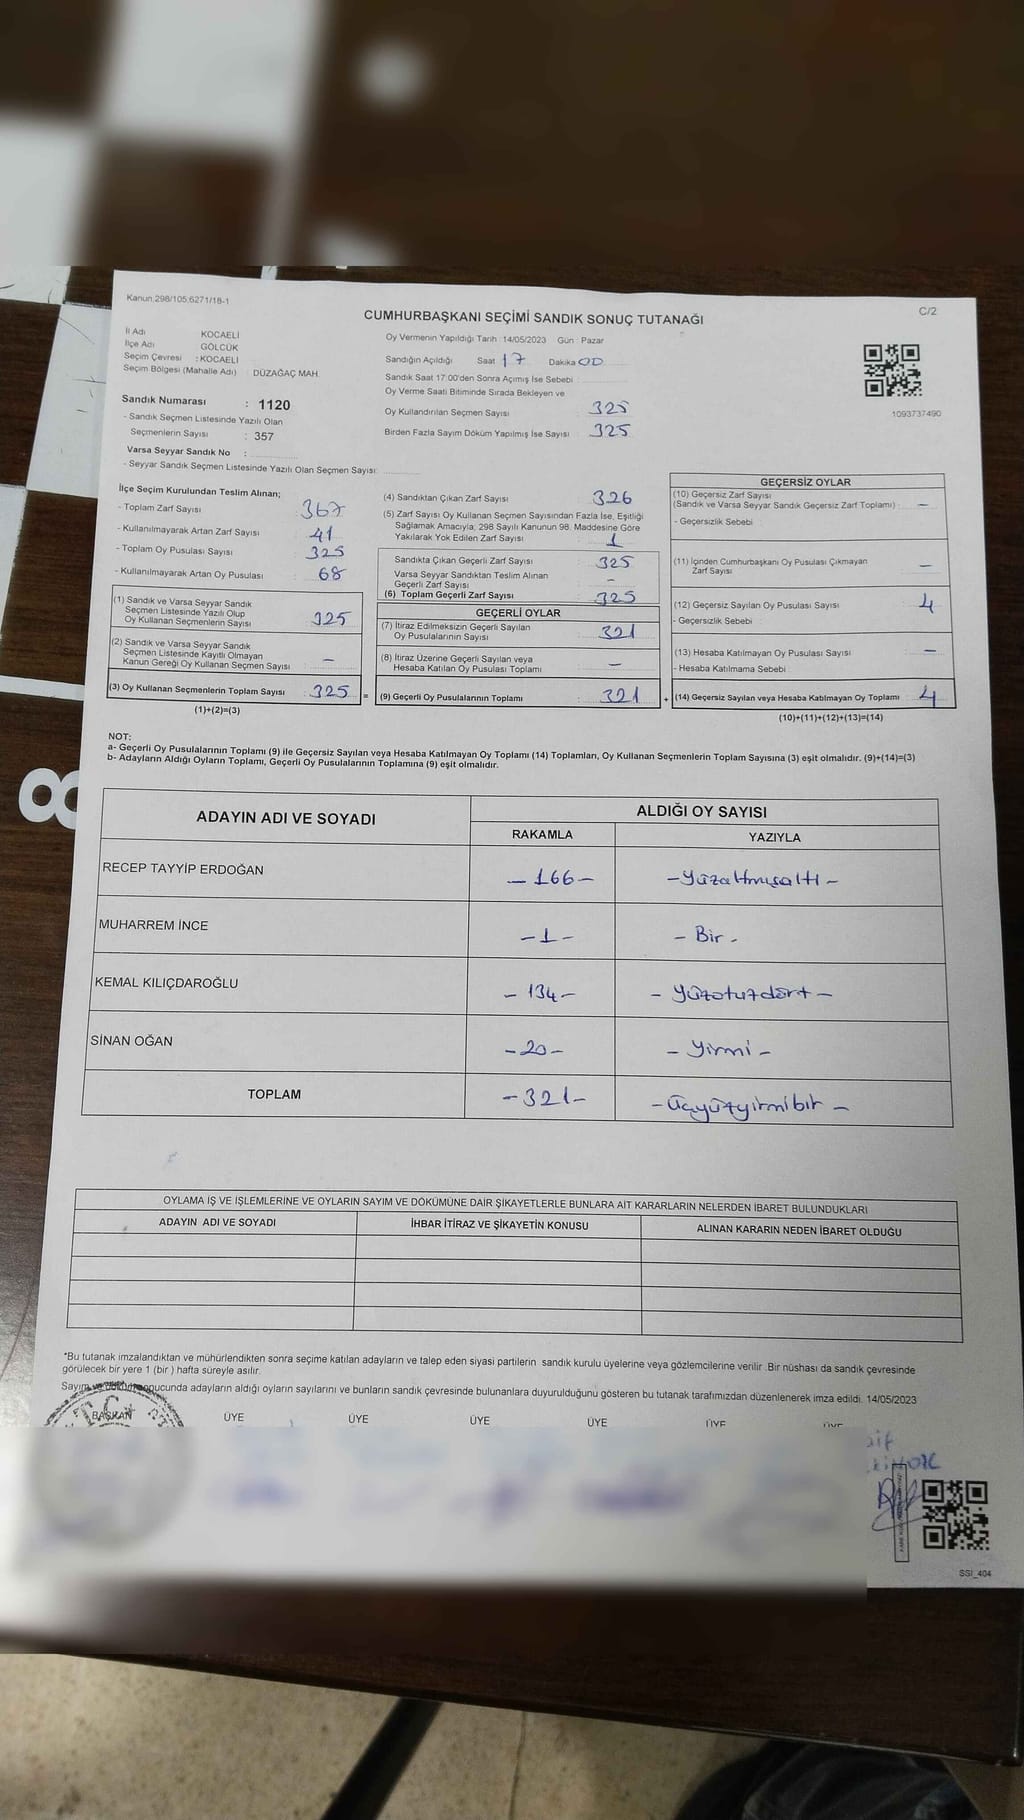 Kanun,298/105,6271/18-1
C/2
CUMHURBAŞKANI SEÇİMİ SANDIK SONUÇ TUTANAĞI
İl Adı KOCAELİ
İlçe Adı GÖLCÜK
Seçim Çevresi : KOCAELİ
Seçim Bölgesi (Mahalle Adı) DÜZAĞAÇ MAH.
Oy Vermenin Yapıldığı Tarih : 14/05/2023 Gün : Pazar
Sandığın Açıldığı Saat 17 Dakika 00
Sandık Saat 17:00'den Sonra Açımış İse Sebebi :
Oy Verme Saati Bitiminde Sırada Bekleyen ve
Oy Kullandırılan Seçmen Sayısı : 325
Birden Fazla Sayım Döküm Yapılmış İse Sayısı : 325
1093737490
Sandık Numarası : 1120
- Sandık Seçmen Listesinde Yazılı Olan
Seçmenlerin Sayısı : 357
Varsa Seyyar Sandık No :
- Seyyar Sandık Seçmen Listesinde Yazılı Olan Seçmen Sayısı:
İlçe Seçim Kurulundan Teslim Alınan;
- Toplam Zarf Sayısı : 367
- Kullanılmayarak Artan Zarf Sayısı : 41
- Toplam Oy Pusulası Sayısı : 325
- Kullanılmayarak Artan Oy Pusulası : 68
(1) Sandık ve Varsa Seyyar Sandık
Seçmen Listesinde Yazılı Olup
Oy Kullanan Seçmenlerin Sayısı : 325
(2) Sandık ve Varsa Seyyar Sandık
Seçmen Listesinde Kayıtlı Olmayan
Kanun Gereği Oy Kullanan Seçmen Sayısı : –
(3) Oy Kullanan Seçmenlerin Toplam Sayısı : 325 =
(1)+(2)=(3)
(4) Sandıktan Çıkan Zarf Sayısı : 326
(5) Zarf Sayısı Oy Kullanan Seçmen Sayısından Fazla İse, Eşitliği
Sağlamak Amacıyla; 298 Sayılı Kanunun 98. Maddesine Göre
Yakılarak Yok Edilen Zarf Sayısı : 1
Sandıkta Çıkan Geçerli Zarf Sayısı : 325
Varsa Seyyar Sandıktan Teslim Alınan
Geçerli Zarf Sayısı : –
(6) Toplam Geçerli Zarf Sayısı : 325
GEÇERLİ OYLAR
(7) İtiraz Edilmeksizin Geçerli Sayılan
Oy Pusulalarının Sayısı : 321
(8) İtiraz Üzerine Geçerli Sayılan veya
Hesaba Katılan Oy Pusulası Toplamı : –
(9) Geçerli Oy Pusulalarının Toplamı : 321 +
GEÇERSİZ OYLAR
(10) Geçersiz Zarf Sayısı
(Sandık ve Varsa Seyyar Sandık Geçersiz Zarf Toplamı) : –
- Geçersizlik Sebebi :
(11) İçinden Cumhurbaşkanı Oy Pusulası Çıkmayan
Zarf Sayısı : –
(12) Geçersiz Sayılan Oy Pusulası Sayısı : 4
- Geçersizlik Sebebi :
(13) Hesaba Katılmayan Oy Pusulası Sayısı : –
- Hesaba Katılmama Sebebi :
(14) Geçersiz Sayılan veya Hesaba Katılmayan Oy Toplamı : 4
(10)+(11)+(12)+(13)=(14)
NOT:
a- Geçerli Oy Pusulalarının Toplamı (9) ile Geçersiz Sayılan veya Hesaba Katılmayan Oy Toplamı (14) Toplamları, Oy Kullanan Seçmenlerin Toplam Sayısına (3) eşit olmalıdır. (9)+(14)=(3)
b- Adayların Aldığı Oyların Toplamı, Geçerli Oy Pusulalarının Toplamına (9) eşit olmalıdır.
ADAYIN ADI VE SOYADI ALDIĞI OY SAYISI
RAKAMLA YAZIYLA
RECEP TAYYİP ERDOĞAN – 166 – – Yüzaltmışaltı –
MUHARREM İNCE – 1 – – Bir –
KEMAL KILIÇDAROĞLU – 134 – – Yüzotuzdört –
SİNAN OĞAN – 20 – – Yirmi –
TOPLAM – 321 – – Üçyüzyirmibir –
OYLAMA İŞ VE İŞLEMLERİNE VE OYLARIN SAYIM VE DÖKÜMÜNE DAİR ŞİKAYETLERLE BUNLARA AİT KARARLARIN NELERDEN İBARET BULUNDUKLARI
ADAYIN ADI VE SOYADI İHBAR İTİRAZ VE ŞİKAYETİN KONUSU ALINAN KARARIN NEDEN İBARET OLDUĞU
*Bu tutanak imzalandıktan ve mühürlendikten sonra seçime katılan adayların ve talep eden siyasi partilerin sandık kurulu üyelerine veya gözlemcilerine verilir .Bir nüshası da sandık çevresinde
görülecek bir yere 1 (bir ) hafta süreyle asılır.
Sayım ve döküm sonucunda adayların aldığı oyların sayılarını ve bunların sandık çevresinde bulunanlara duyurulduğunu gösteren bu tutanak tarafımızdan düzenlenerek imza edildi. 14/05/2023
BAŞKAN ÜYE ÜYE ÜYE ÜYE ÜYE ÜYE
T.C.
SSI_404
8